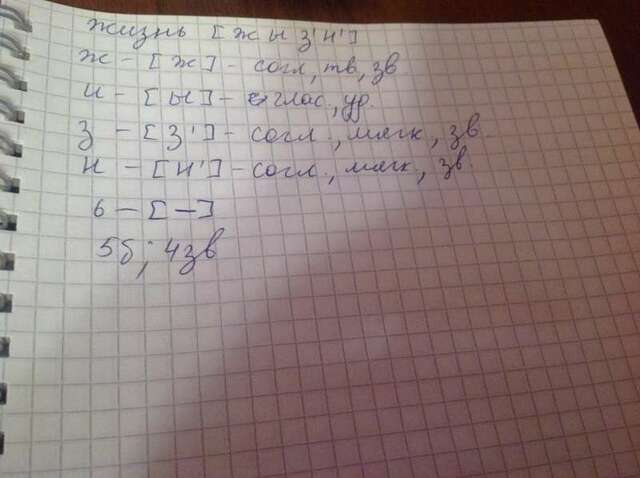 жизнь [жыз'н']
ж - [ж] - согл, тв, зв
и - [ы] - глас, уд.
з - [з'] - согл., мягк., зв.
н - [н'] - согл., мягк., зв.
ь - [-]
5б; 4зв